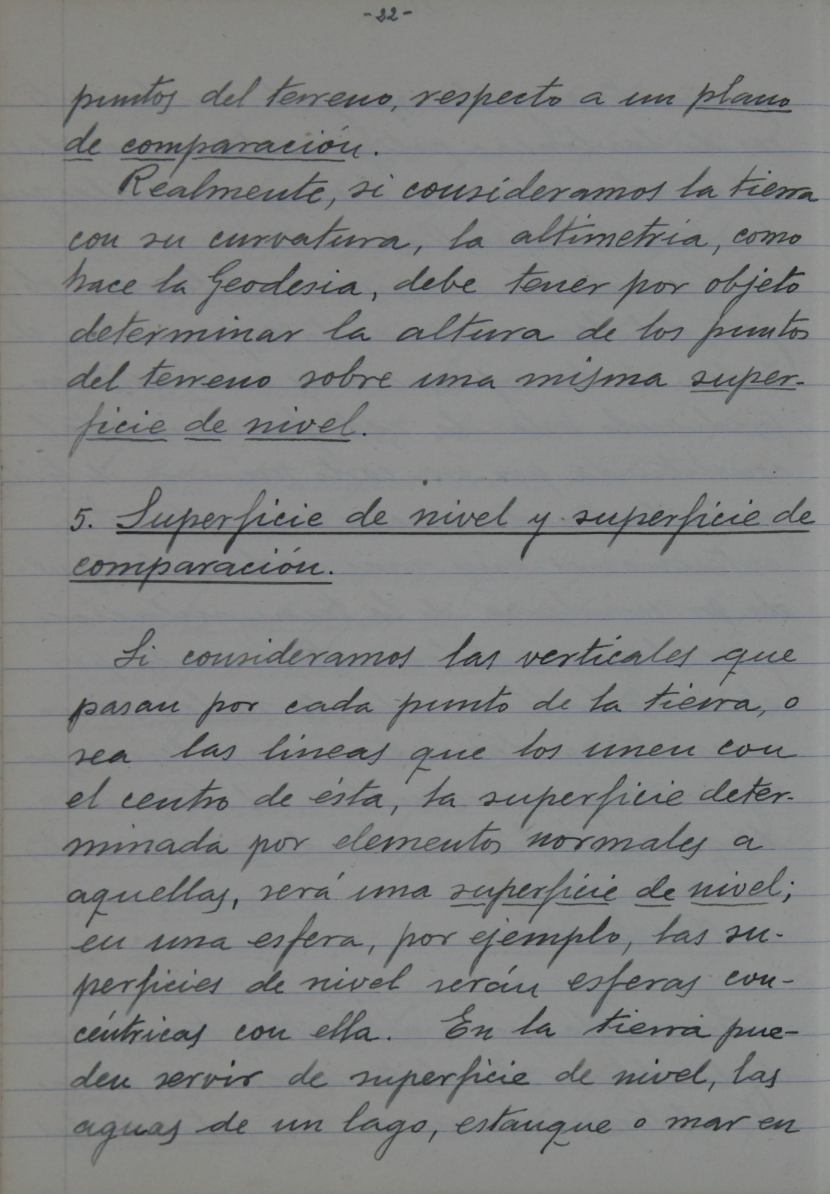 -22-
puntos del terreno, respecto a un plano
de comparación.
Realmente, si consideramos la tierra
con su curvatura, la altimetria, como
hace la Geodesia, debe tener por objeto
determinar la altura de los puntos
del terreno sobre una misma super-
ficie de nivel.
5. Superficie de nivel y superficie de
comparación.
Si consideramos las verticales que
pasan por cada punto de la tierra, o
sea las lineas que los unen con
el centro de ésta, la superficie deter-
minada por elementos normales a
aquellas, será una superficie de nivel;
en una esfera, por ejemplo, las su-
perficies de nivel serán esferas con-
céntricas con ella. En la tierra pue-
den servir de superficie de nivel, las
aguas de un lago, estanque o mar en